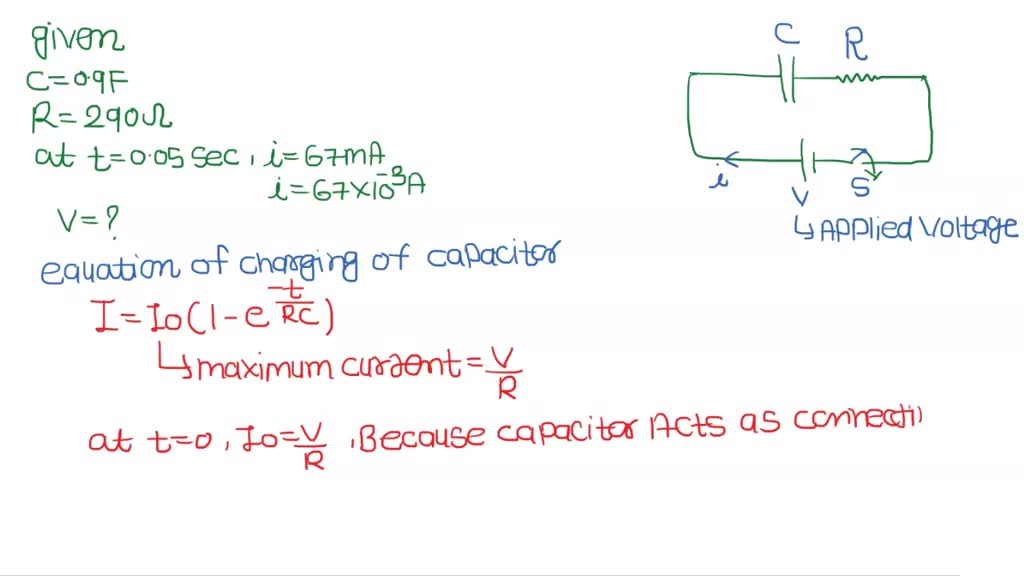 given
C=0.9F
R=290Ω
at t=0.05 sec, i=67mA
i=67×10⁻³A
V=?
C
R
i
V
S
↳Applied Voltage
equation of charging of capacitor
I=Io(1-e^(-t/RC))
↳maximum current=V/R
at t=0, Io=V/R, Because capacitor Acts as connecti